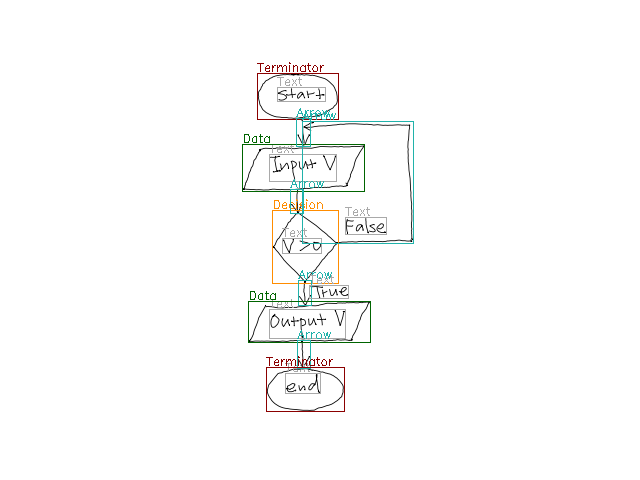 Terminator
Text
start
Arrow
Arrow
Data
Text
Input V
Arrow
Decision
Text
False
Text
V >0
Arrow
Text
True
Data
Text
Output V
Arrow
Terminator
Text
end